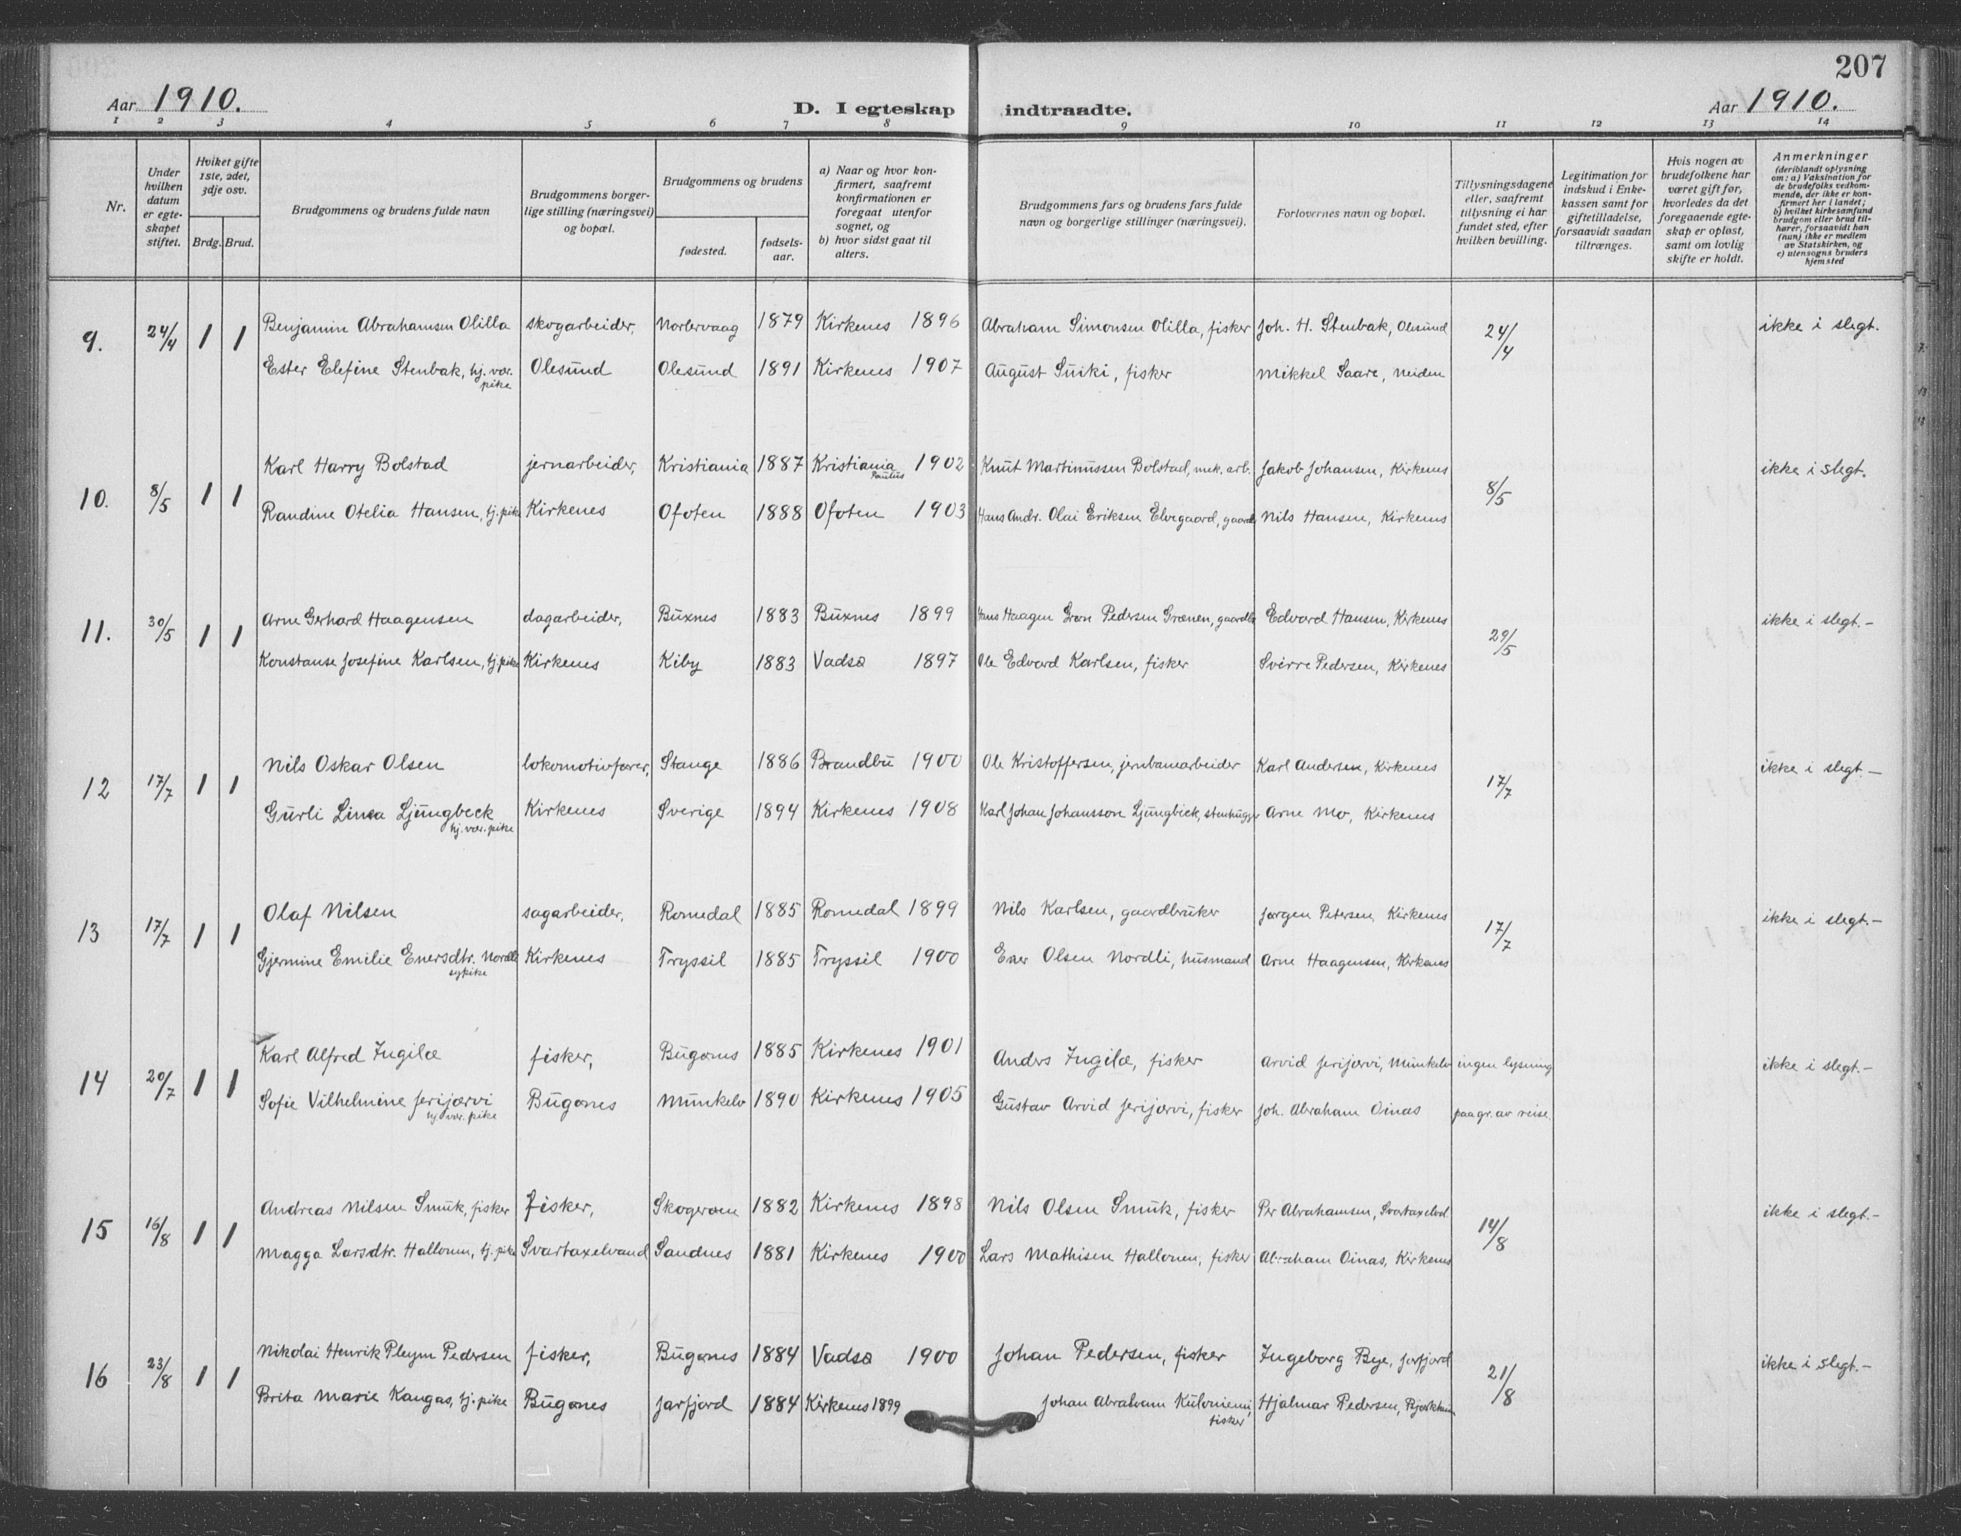 207
Aar 1910. D. I egteskap indtraadte. Aar 1910.
1 2 3 4 5 6 7 8 9 10 11 12 13 14
Nr.
Under hvilken datum er egteskapet stiftet.
Hviket gifte 1ste, 2det, 3dje osv.
Brdg. Brud.
Brudgommens og brudens fulde navn
Brudgommens borgerlige stilling (næringsvei) og bopæl.
Brudgommens og brudens
fødested. fødselsaar.
a) Naar og hvor konfirmert, saafremt konfirmationen er foregaat utenfor sognet, og
b) hvor sidst gaat til alters.
Brudgommens fars og brudens fars fulde navn og borgerlige stillinger (næringsvei).
Forlovernes navn og bopæl.
Tillysningsdagene eller, saafremt tillysning ei har fundet sted, efter hvilken bevilling.
Legitimation for indskud i Enkekassen samt for giftetilladelse, forsaavidt saadan tiltrænges.
Hvis nogen av brudefolkene har været gift før, hvorledes da det foregaaende egteskap er opløst, samt om lovlig skifte er holdt.
Anmerkninger
(deriblandt oplysning om: a) Vaksination for de brudefolks vedkommende, der ikke er konfirmert her i landet; b) hvilket kirkesamfund brudgom eller brud tilhører, forsaavidt han (hun) ikke er medlem av Statskirken, og c) utensogns bruders hjemsted
9. 24/4 1 1 Benjamin Abrahamsen Olilla skogarbeider, Norlervaag 1879 Kirkenes 1896 Abraham Simonsen Olilla, fisker Joh. H. Stenbak, Olesund 24/4 ikke i slegt.
Ester Elefine Stenbak, hj. vær. pike Olesund Olesund 1891 Kirkenes 1907 August Suiki, fisker Mikkel Saare, Neiden
10. 8/5 1 1 Karl Harry Bolstad jernarbeider, Kristiania 1887 Kristiania Paulus 1902 Knut Martinussen Bolstad, mek. arb. Jakob Johansen, Kirkenes 8/5 ikke i slegt.
Randine Otelia Hansen, tj. pike Kirkenes Ofoten 1888 Ofoten 1903 Hans Andr. Olai Eriksen Elvegaard, gaardb Nils Hansen, Kirkenes
11. 30/5 1 1 Arne Gerhard Haagensen dagarbeider, Buxnes 1883 Buxnes 1899 Hans Haagen Grøn Pedersen Grønen, gaardbr Edvard Hansen, Kirkenes 29/5 ikke i slegt.-
Konstanse Josefine Karlsen, tj. pike Kirkenes Kiby 1883 Vadsø 1897 Ole Edvard Karlsen, fisker Sverre Pedersen, Kirkenes
12 17/7 1 1 Nils Oskar Olsen lokomotivfører, Stange 1886 Brandbu 1900 Ole Kristoffersen, jernbanearbeider Karl Andersen, Kirkenes 17/7 ikke i slegt.-
Gurli Linea Ljungbeck hj. vær. pike Kirkenes Sverige 1894 Kirkenes 1908 Karl Johan Johansson Ljungbeck, stenhugger Arne Mo, Kirkenes
13 17/7 1 1 Olaf Nilsen sagarbeider, Romedal 1885 Romedal 1899 Nils Karlsen, gaardbruker Jørgen Petersen, Kirkenes 17/7 ikke i slegt.-
Gjermine Emilie Enersdtr. Nordli sypike Kirkenes Tryssil 1885 Tryssil 1900 Ener Olsen Nordli, husmand Arne Haagensen, Kirkenes
14 20/7 1 1 Karl Alfred Ingilæ fisker, Bugønes 1885 Kirkenes 1901 Anders Ingilæ, fisker Arvid Jerijærvi, Munkelv ingen lysning ikke i slegt.-
Sofie Vilhelmine Jerijærvi hj. vær. pike Bugønes Munkelv 1890 Kirkenes 1905 Gustav Arvid Jerijærvi, fisker Joh. Abraham Oinas paa gr. av reise
15 16/8 1 1 Andreas Nilsen Smuk, fisker fisker, Skogerøen 1882 Kirkenes 1898 Nils Olsen Smuk, fisker Per Abrahamsen, Svartaxelvd 14/8 ikke i slegt.-
Magga Larsdtr. Hallonen, tj. pike Svartaxelvand Sandnes 1881 Kirkenes 1900 Lars Mathisen Hallonen, fisker Abraham Oinas, Kirkenes
16 23/8 1 1 Nikolai Henrik Pleym Pedersen fisker, Bugønes 1884 Vadsø 1900 Johan Pedersen, fisker Ingeborg Bye, Jarfjord 21/8 ikke i slegt.-
Brita Marie Kangas, tj. pike Bugønes Jarfjord 1884 Kirkenes 1899 Johan Abraham Kuloniemi, fisker Hjalmar Pedersen,